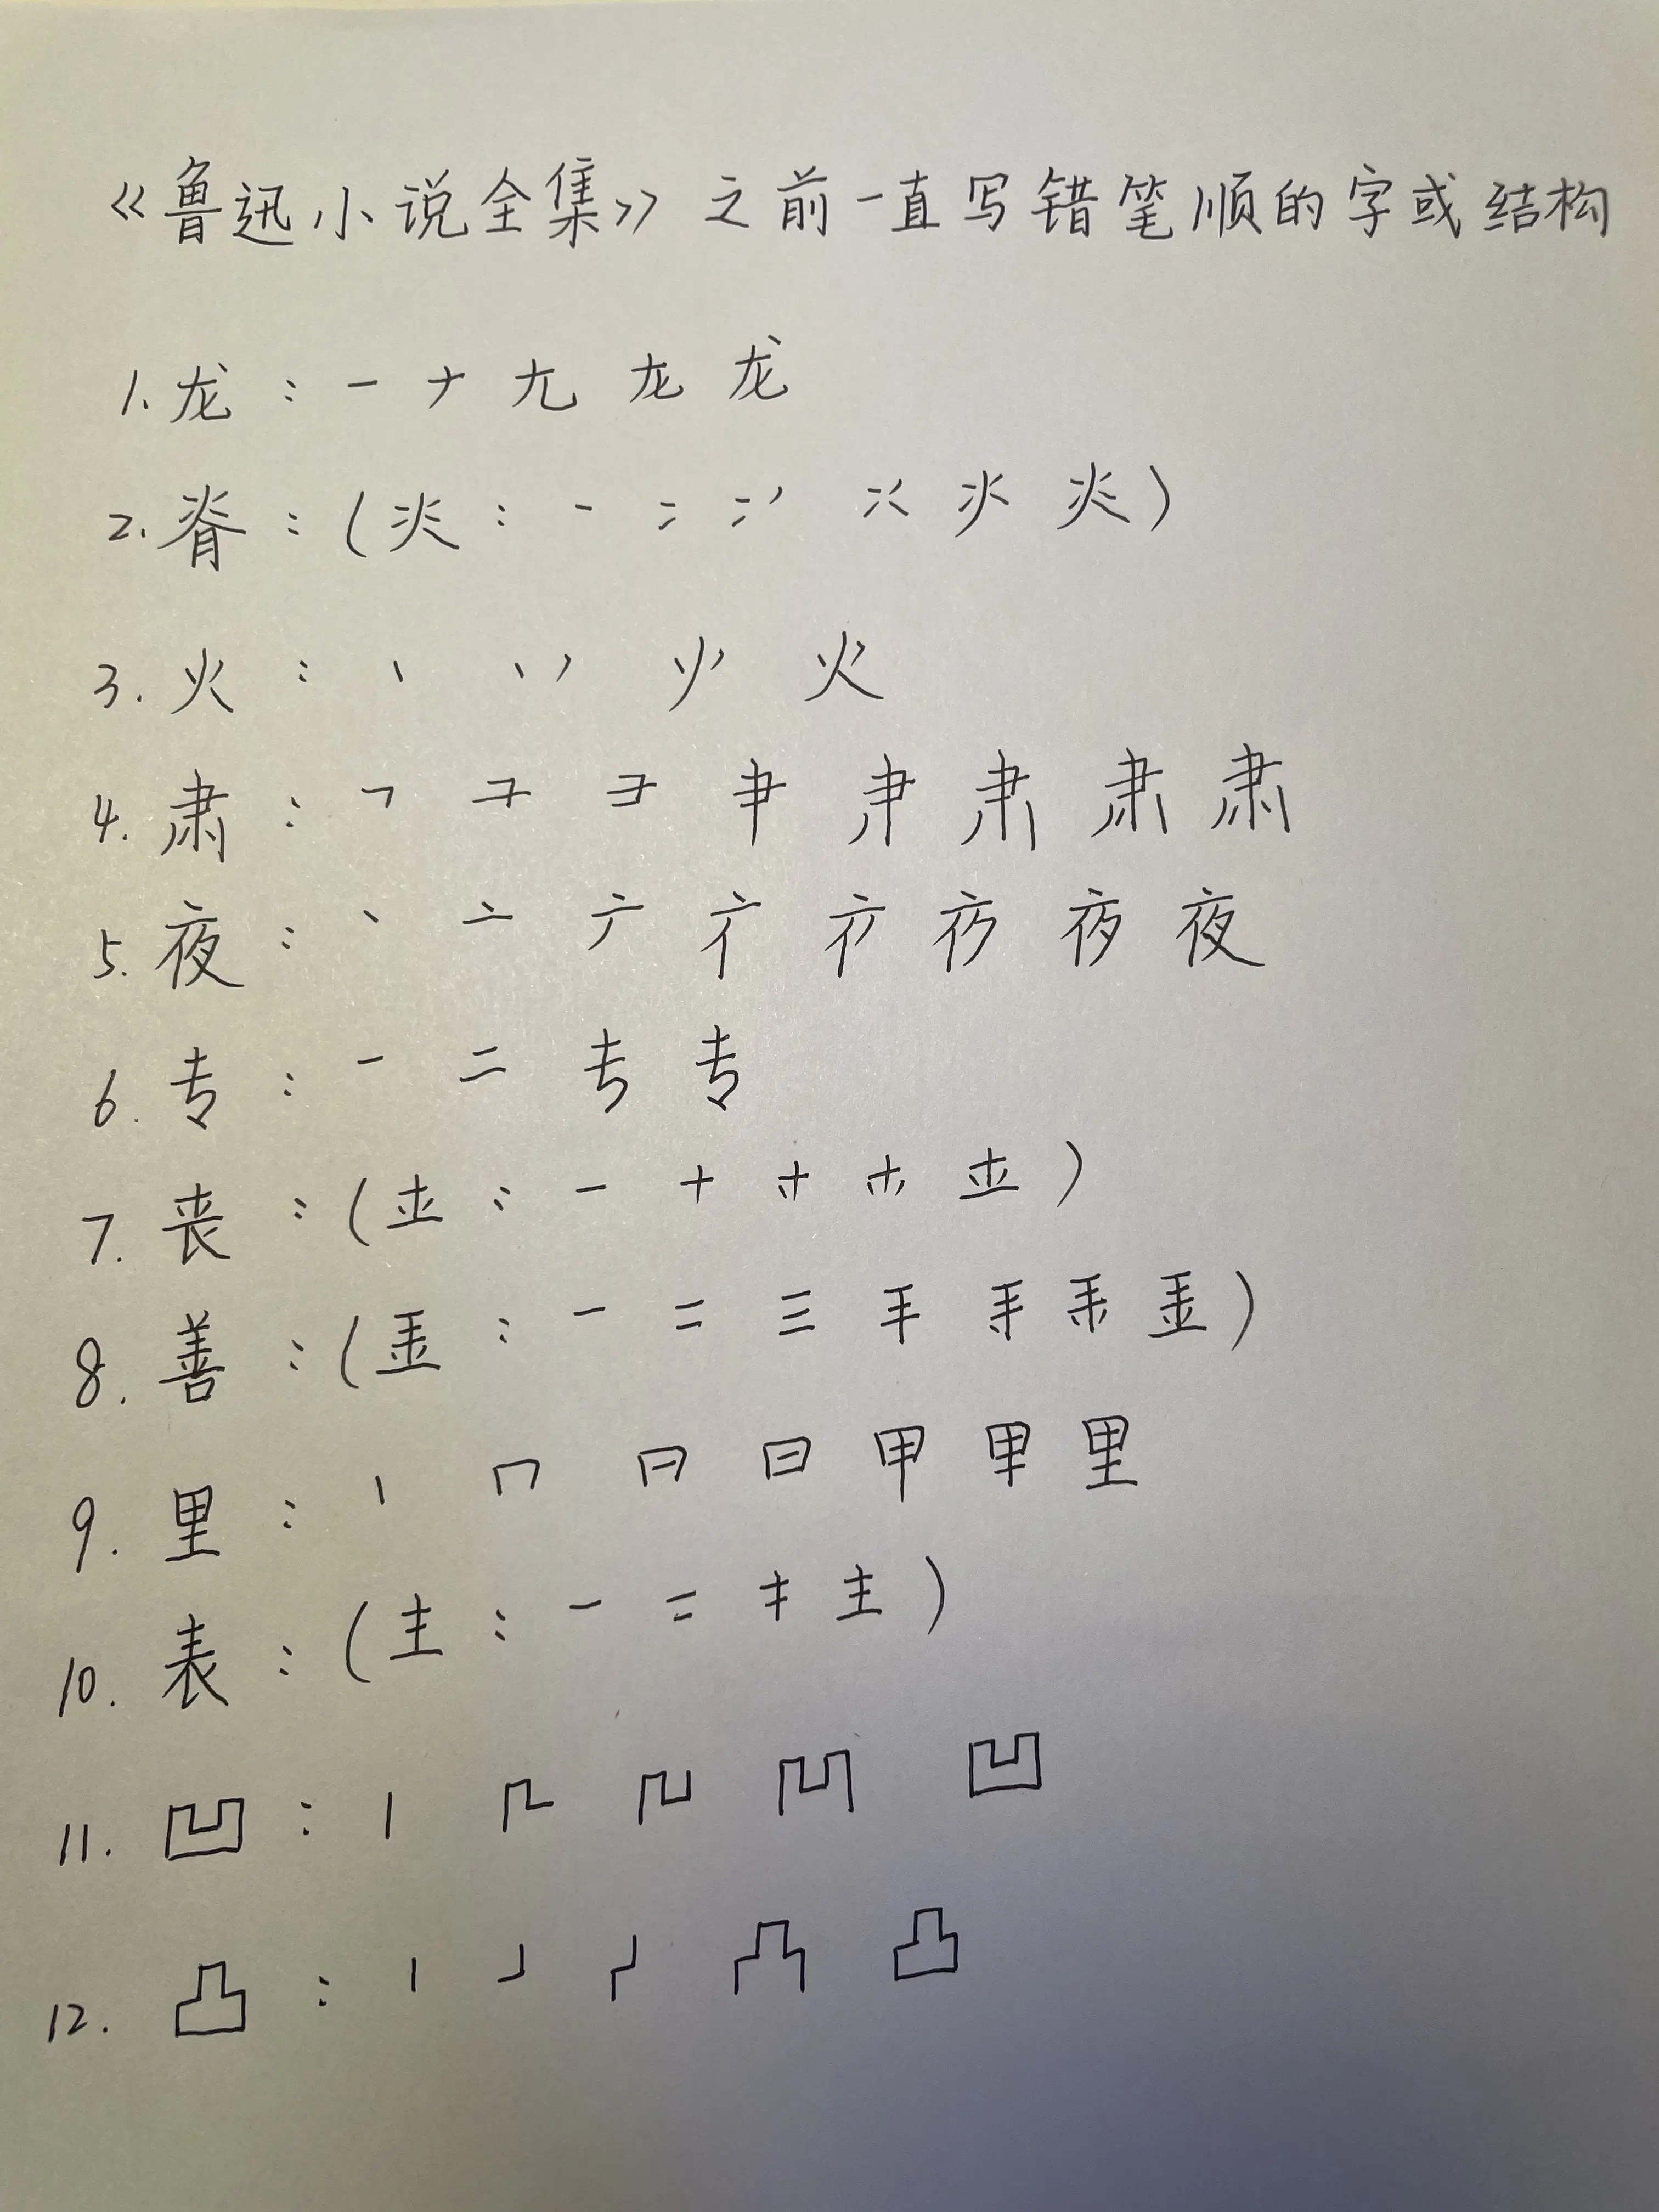 《鲁迅小说全集》之前一直写错笔顺的字或结构
1. 龙：一 ナ 尢 龙 龙
2. 脊：(
3. 火：丶 丷 火
4. 肃：㇕ ⺕ 肀 肃 肃
5. 夜：丶 亠 夜 夜
6. 专：一 二 专
7. 丧：( 一 十 )
8. 善：( 一 二 三 )
9. 里：丨 冂 日 甲 里
10. 表：(龶：一 二 キ 龶)
11. 凹：丨 凹
12. 凸：丨 凸